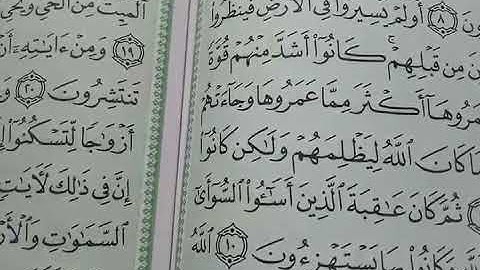 ونَ ٨ أَوَلَمْ يَسِيرُوا۟ فِى ٱلْأَرْضِ فَيَنظُرُوا۟
مِن قَبْلِهِمْ ۚ كَانُوٓا۟ أَشَدَّ مِنْهُمْ قُوَّةً
عَمَرُوهَآ أَكْثَرَ مِمَّا عَمَرُوهَا وَجَآءَتْهُمْ
مَا كَانَ ٱللَّهُ لِيَظْلِمَهُمْ وَلَٰكِن كَانُوٓا۟
ثُمَّ كَانَ عَٰقِبَةَ ٱلَّذِينَ أَسَٰٓـُٔوا۟ ٱلسُّوٓأَىٰٓ
ٱللَّهِ وَكَانُوا۟ بِهَا يَسْتَهْزِءُونَ ١٠ ٱللَّهُ
ٱلْمَيِّتَ مِنَ ٱلْحَىِّ وَيُحْىِ
١٩ وَمِنْ ءَايَٰتِهِۦٓ أَنْ
تَنتَشِرُونَ ٢٠ وَ
أَزْوَٰجًا لِّتَسْكُنُوٓا۟ إِ
إِنَّ فِى ذَٰلِكَ لَءَايَٰتٍ
ٱلسَّمَٰوَٰتِ وَٱلْأَرْ